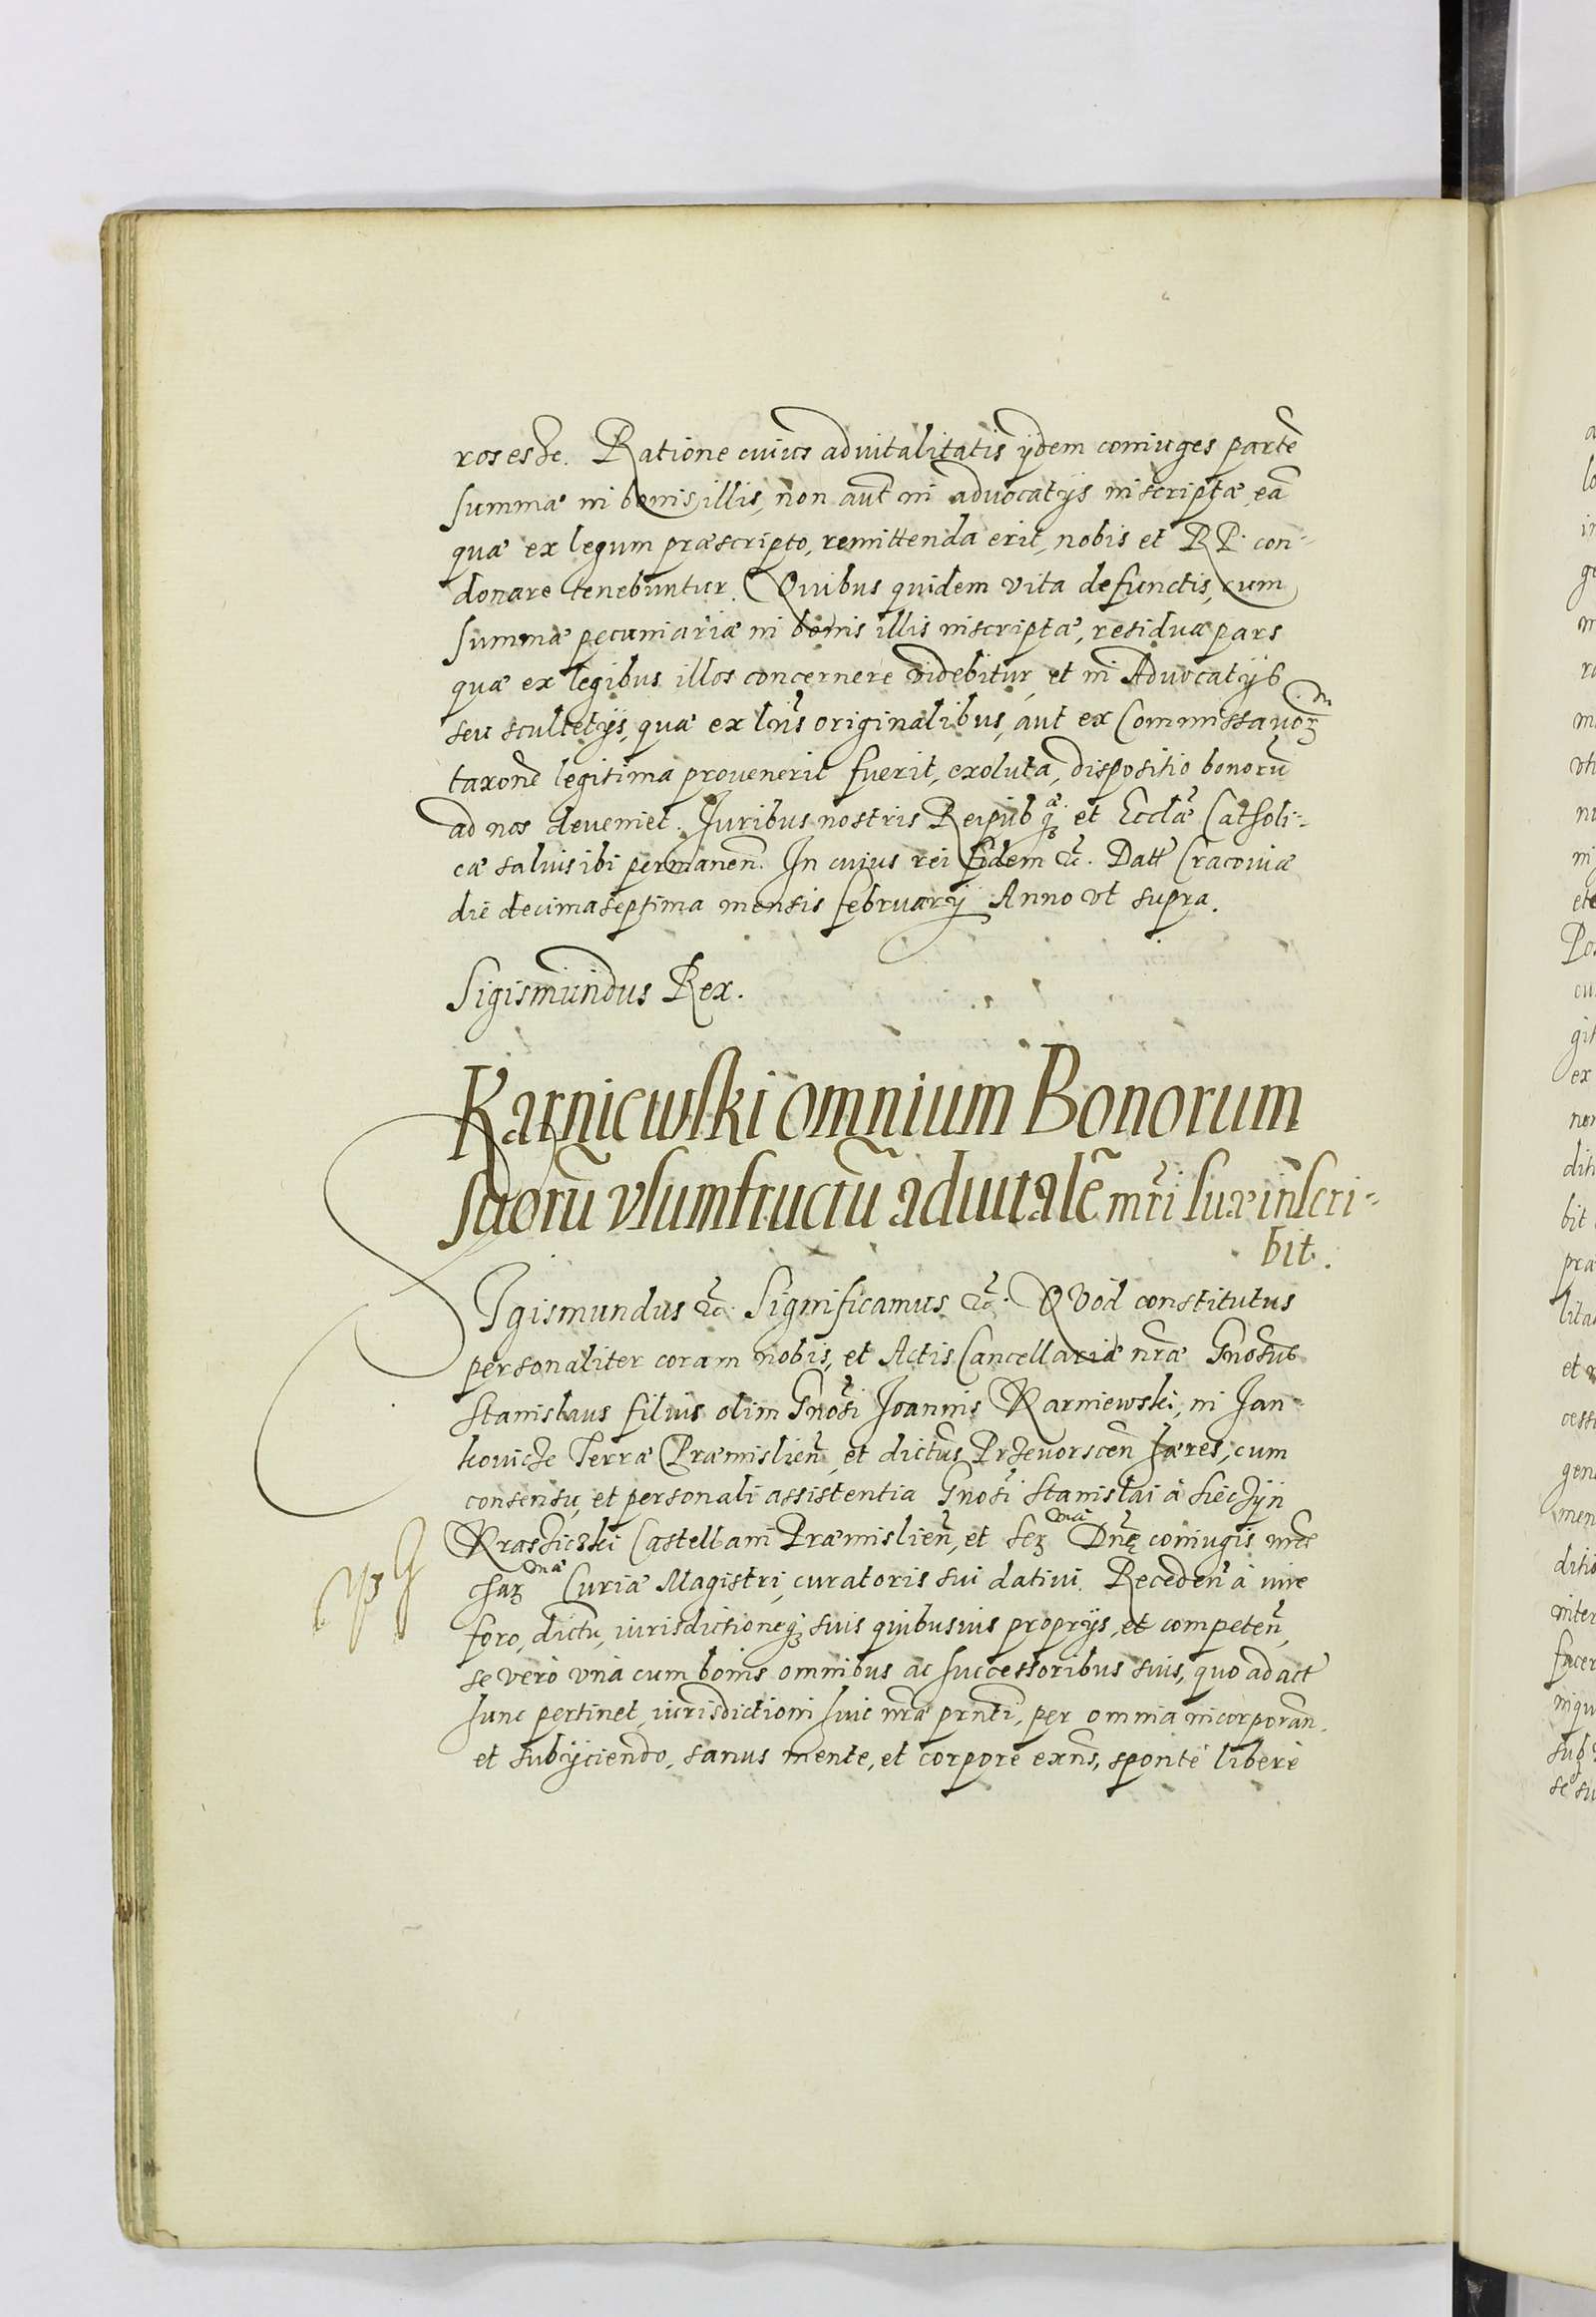 ros esse. Ratione cuius advitalitatis ijdem coniuges partē
summæ in bonis illis, non aūt in advocatijs inscriptæ, eā
quæ ex legum præscripto, remittenda erit, nobis et RP. con-
donare tenebuntur. Quibus quidem vita defunctis, cum
summæ pecuniariæ in bonis illis inscriptæ, residua pars
quæ ex legibus illos concernere videbitur, et in Advocatijs
seu scultetijs, quæ ex lr̃is originalibus, aut ex Commissarioꝝ
taxone legitima provenerit fuerit, exoluta, dispositio bonorū
ad nos deveniet. Iuribus nostris Reipub. et Ecclæ Catholi-
cæ salvis ibi permaneñ. In cuius rei fidem &c. Datt Cracoviæ
die decima septima mensis february Anno vt supra.
Sigismundus Rex.
Karniewski omnium Bonorum
suorū vsumfructū aduitalē mr̃i suæ inscri-
bit.
SIgismundus &c. Significamus &c. QVod constitutus
personaliter coram nobis, et Actis Cancellariæ nr̃æ Gñosus
Stanislaus filius olim Gñosi Joannis Karniewski, in Jan-
kovicze Terræ Præmislieñ, et dictus Przevorsceñ hæres, cum
consensu, et personali assistentia Gñosi Stanislai à Sieczÿn
Krassiczki Castellani Præmislieñ, et Ser Dnę coniugis nr̃æ
chaꝝ Curiæ Magistri, curatoris sui dativi. Recedeñ à iure
foro, dictu, iurisdictioneq; suis quibusvis proprijs, et competeñ,
se vero vnà cum bonis omnibus ac successoribus suis, quo ad act
hunc pertinet, iurisdictioni huic nr̃æ prñti, per omnia incorporañ.
et subijciendo, sanus mente, et corpore exñs, sponte libere